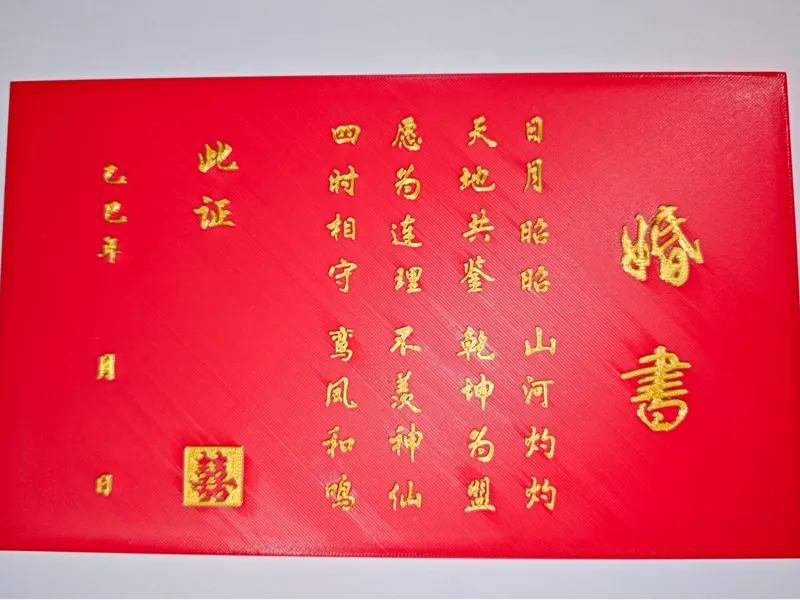 婚書
日月昭昭 山河灼灼
天地共鉴 乾坤为盟
愿为连理 不羡神仙
四时相守 鸾凤和鸣
此证
囍
乙巳年 月 日